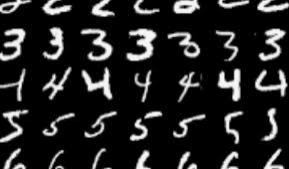 2 2 2 2 2 2 2
3 3 3 3 3 3 3
4 4 4 4 4 4 4
5 5 5 5 5 5 5
6 6 6 6 6 6 6